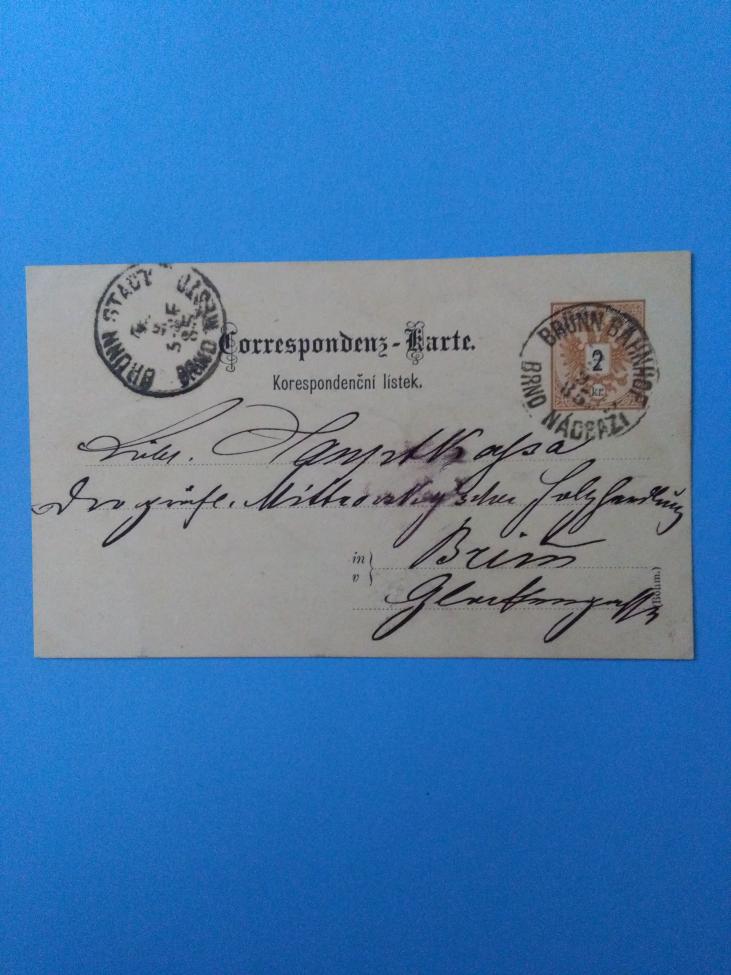 BRÜNN STADT
BRNO MĚSTO
Correspondenz-Karte.
Korespondenční lístek.
2
kr.
BRÜNN BAHNHOF
BRNO NÁDRAŽI
85
Löbl. Hauptkassa
der gräfl. Mittrowsky'schen Holzhandlung
in
v
Brünn
Glockengasse
(Böhm.)